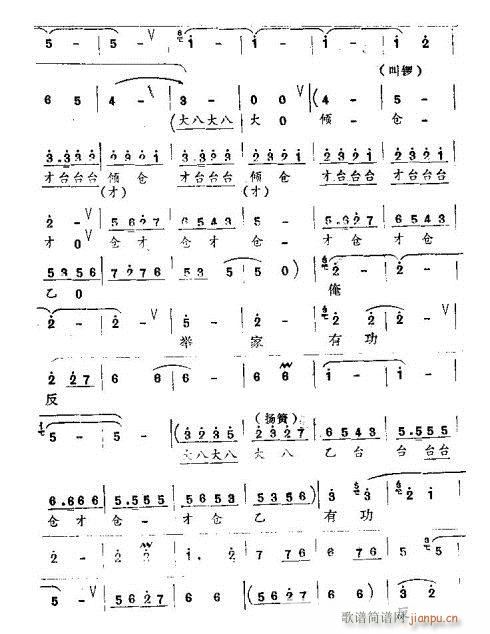 5 - | 5 - V | i - | i - | i - | i 2
(叫锣)
6 5 | 4 - | 3 - | 0 0 V | (4 - | 5 -
(大八大八 大 0 倾 - 仓 -
3.332 | 2321 | 3.332 | 2321 | 2321 | 3.332
才台台台 倾仓 才台台台 倾仓 才台台台 才台台台
(才) (才)
2 - V | 5627 | 6543 | 5 - | 5.627 | 6543
才 0 V 仓 才 仓 才 仓 - 才 仓 才 仓
5356 | 7276 | 53 5 | 5 0) | 2 - | 2 -
乙 0 俺
2 - | 2 - V | 5 - | 2 - | 2 2 | 2 - V
举 家 有 功
2 27 | 6 6 | 6 - | 6 6 | i - | i -
反
(扬簧)
5 - | 5 - | (3235 | 2327 | 6543 | 5.555
大八大八 大八 乙 台 台 台台
6.666 | 5.555 | 5653 | 5356) | 3 3 | 2 i
仓 才 仓 - 才 仓 乙 有 功
2 - | 2 2 | i. 2 | 7 76 | 6 76 | 5 5
5 - | 5627 | 6 - | (5627 | 6 - | 3 2
反
歌谱简谱网
jianpu.cn